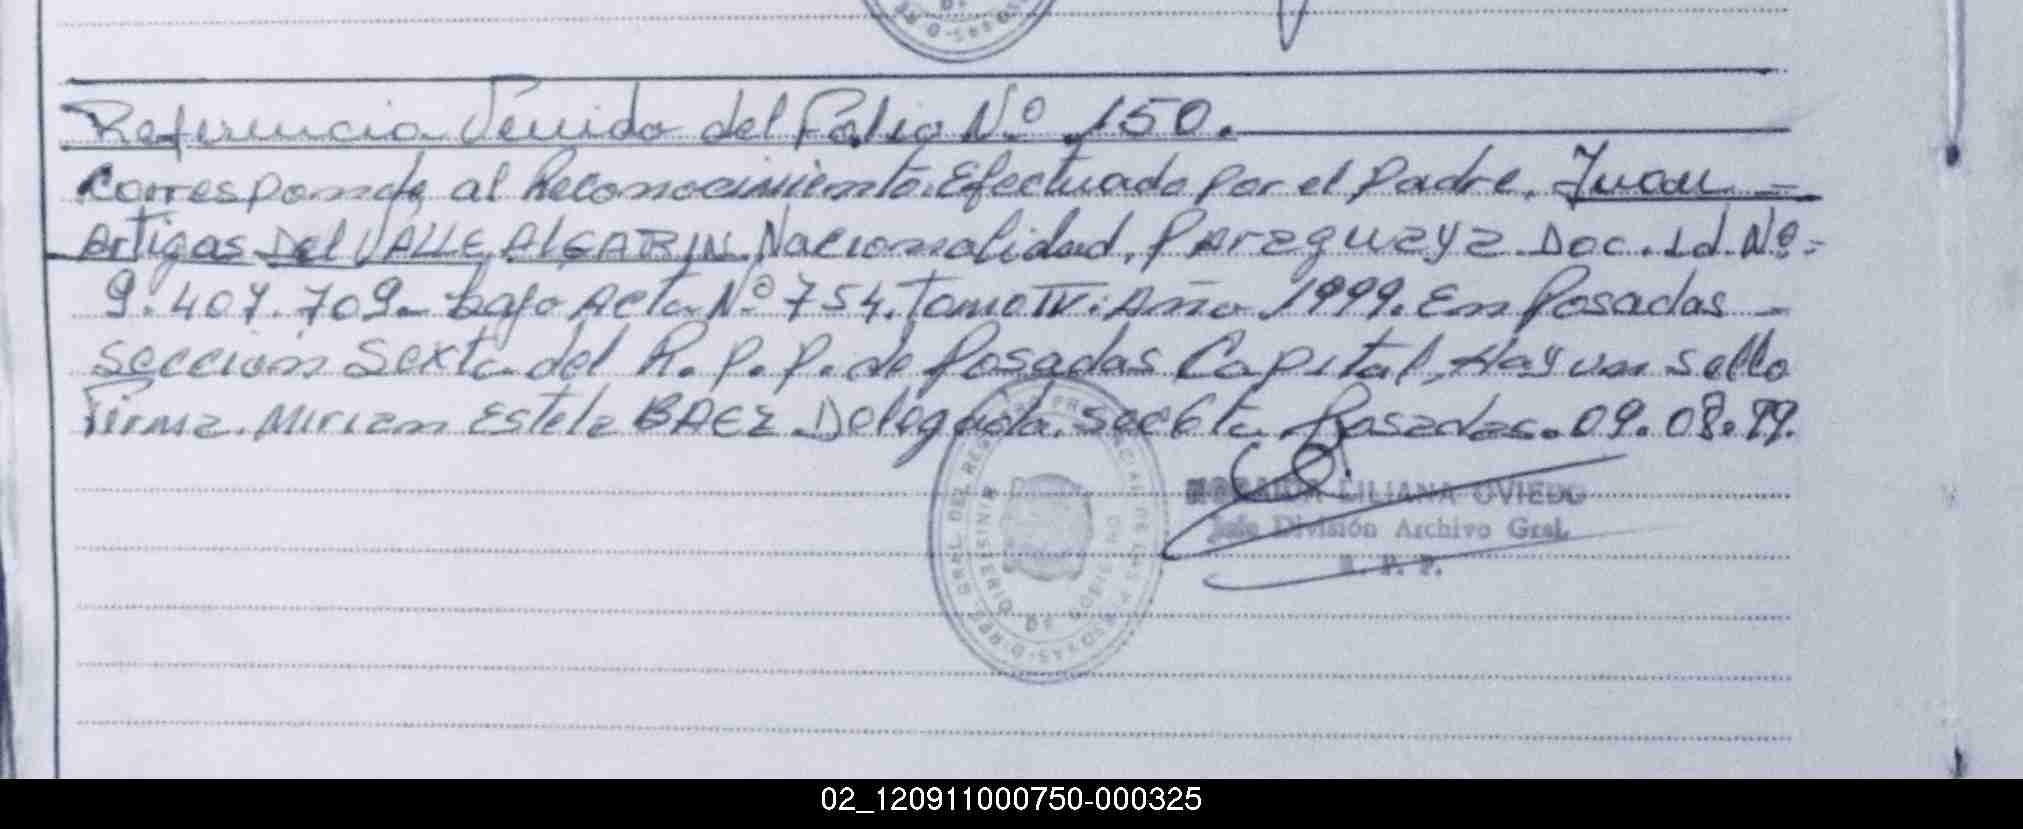 Referencia Venida del Folio Nº 150.
Corresponde al Reconocimiento Efectuado por el padre, Juan -
Artigas Del VALLE ALGARIN, Nacionalidad, Paraguaya Doc. Id. Nº -
9.407.709 - bajo Acta Nº 754. Tomo IV. Año 1999. En Posadas -
Sección Sexta del R. P. P. de Posadas Capital, Hay un sello
Firma. Miriam Estela BAEZ Delegada. Sec 6ta Posadas. 09.08.99.
LILIANA OVIEDO
Jefe División Archivo Gral.
R. P. P.
02_120911000750-000325